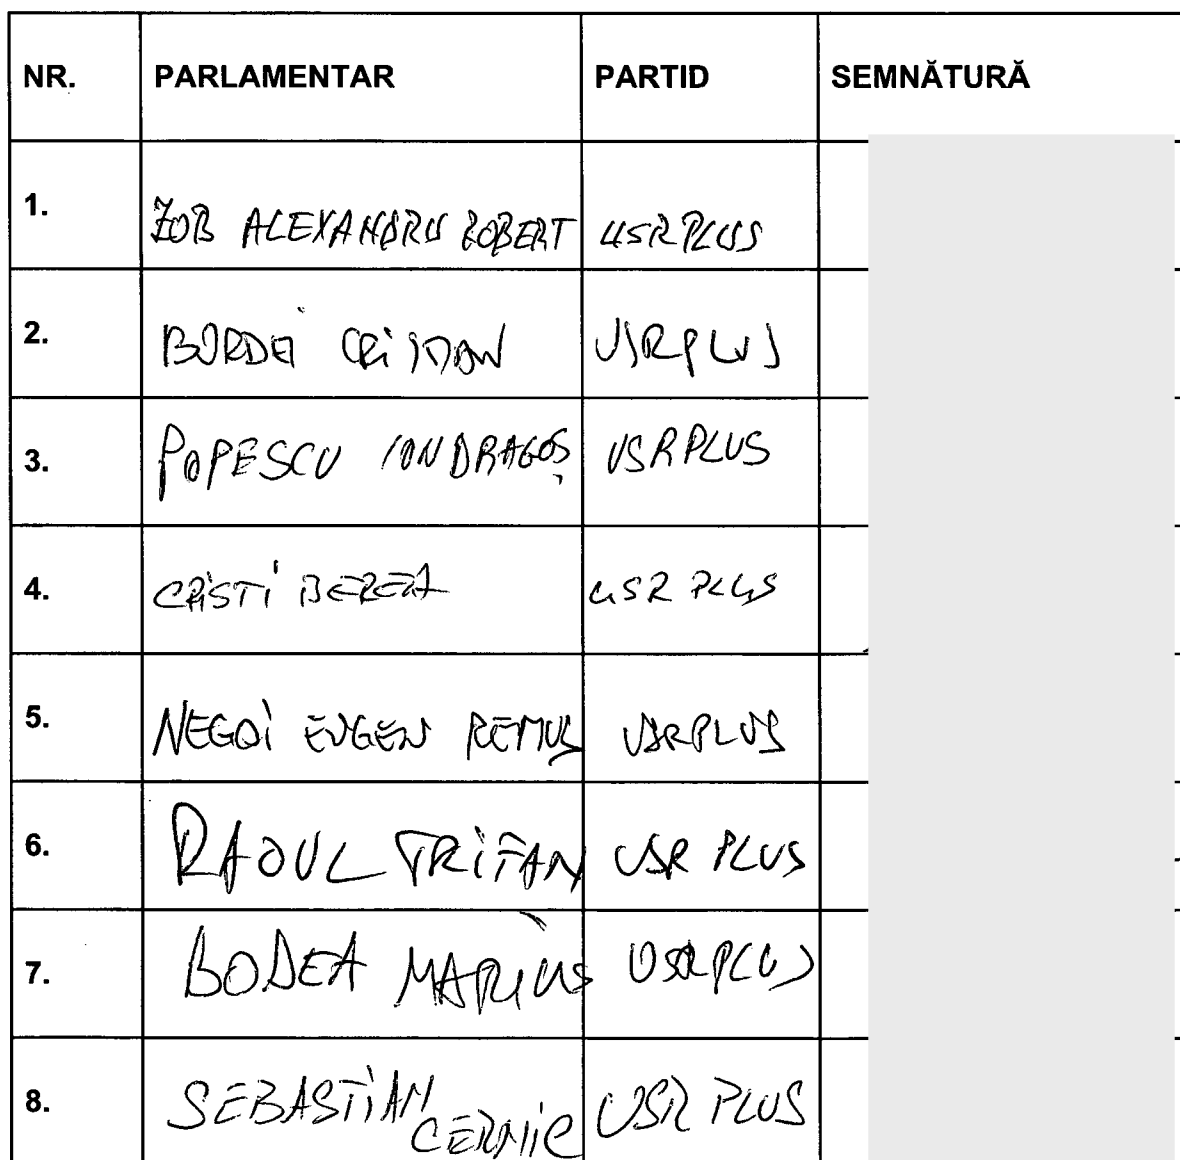 NR. PARLAMENTAR PARTID SEMNĂTURĂ
1. ZOB ALEXANDRU ROBERT USR PLUS
2. BORDEI CRISTIAN USRPLUS
3. POPESCU ION DRAGOȘ USRPLUS
4. CRISTI BEREA USR PLUS
5. NEGOI EUGEN REMUS USRPLUS
6. RAOUL TRIFAN USR PLUS
7. BODEA MARIUS USRPLUS
8. SEBASTIAN CERNIC USR PLUS